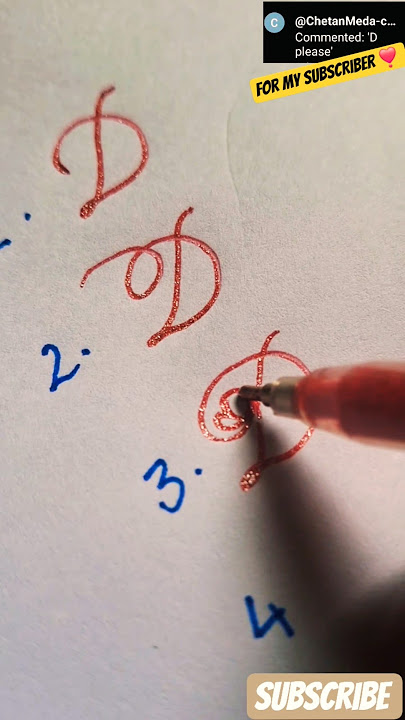 @ChetanMeda-c...
Commented: 'D
please'
FOR MY SUBSCRIBER
D
2. D
3. D
4
SUBSCRIBE